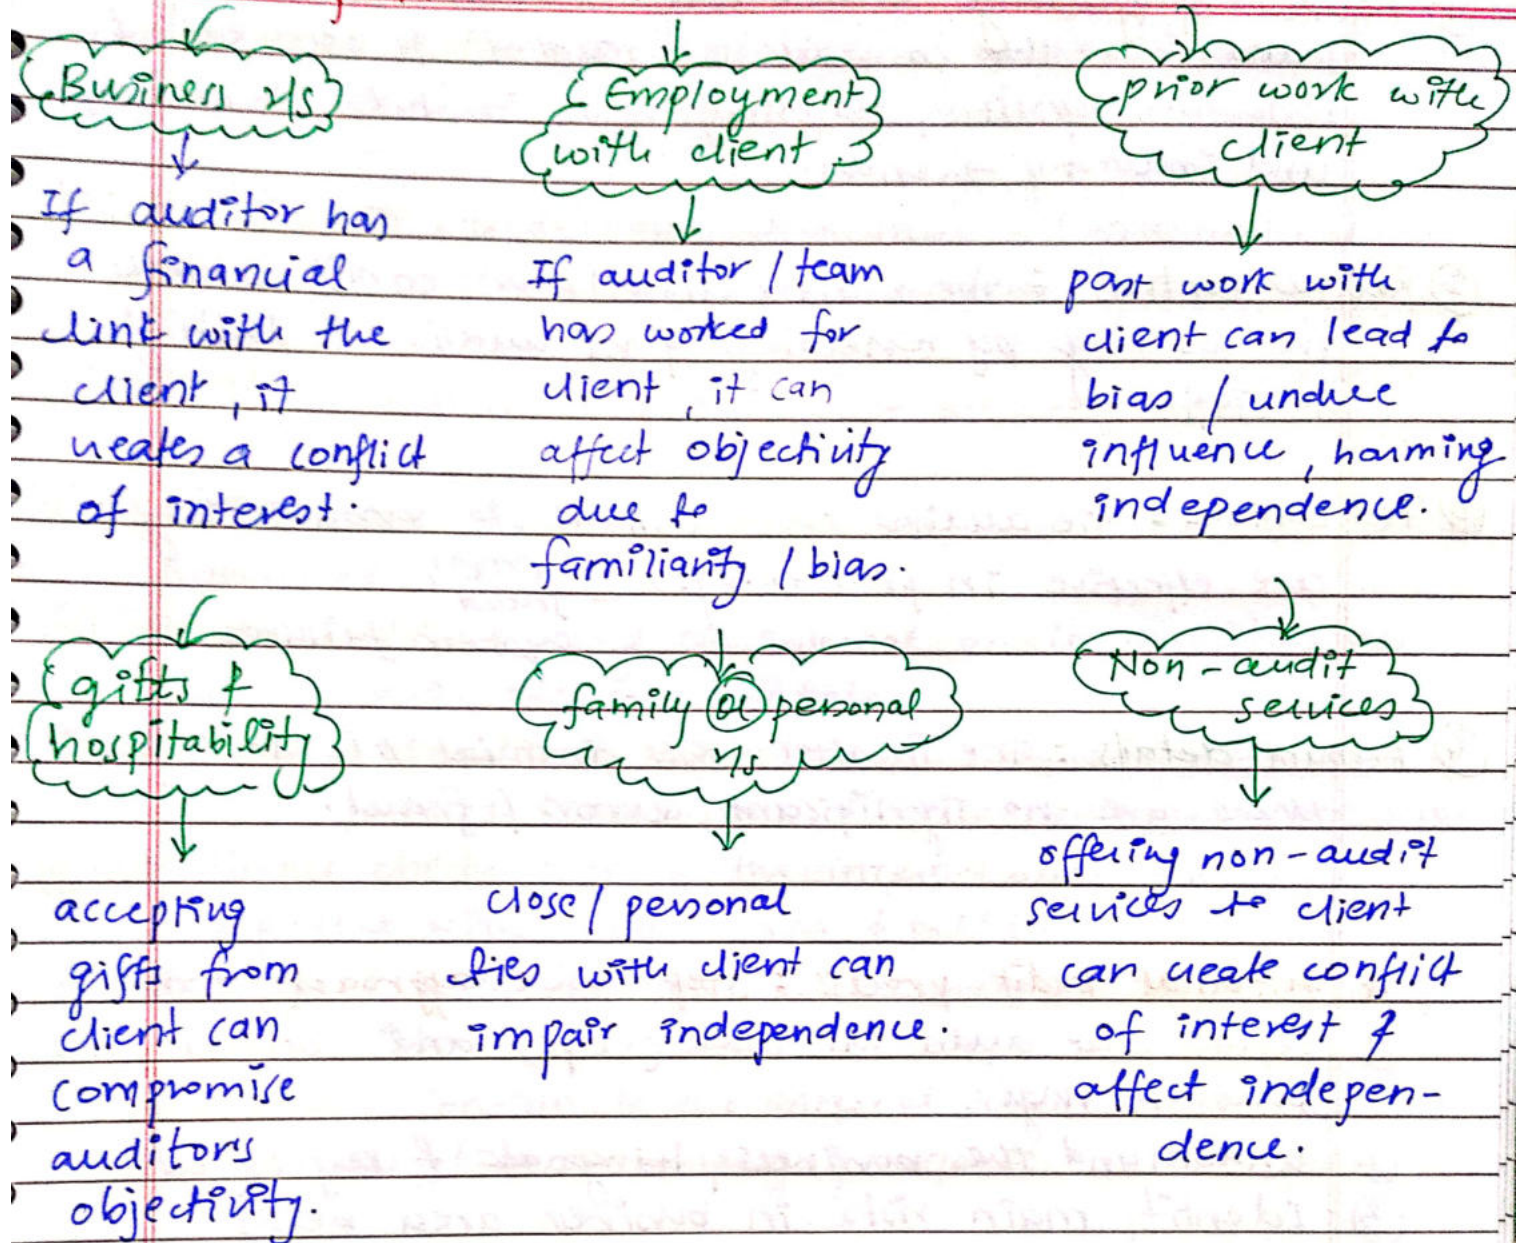 Business r/s
If auditor has
a financial
link with the
client, it
creates a conflict
of interest.
Employment
with client
If auditor / team
has worked for
client, it can
affect objectivity
due to
familiarity / bias.
prior work with
client
past work with
client can lead to
bias / undue
influence, harming
independence.
gifts &
hospitability
accepting
gifts from
client can
compromise
auditors
objectivity.
family or personal
r/s
close / personal
ties with client can
impair independence.
Non-audit
services
offering non-audit
services to client
can create conflict
of interest &
affect indepen-
dence.